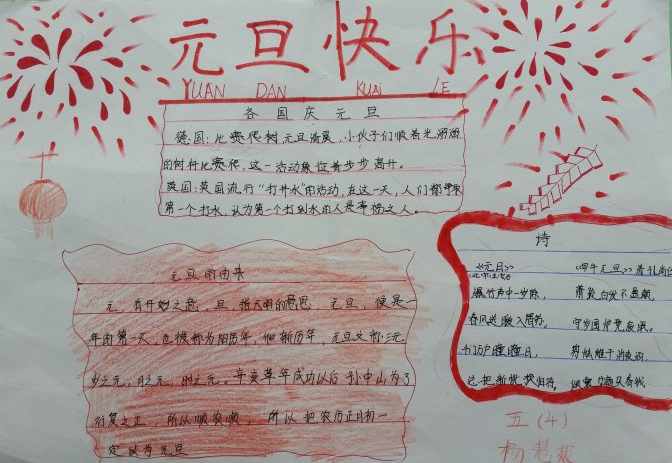 元旦快乐
YUAN DAN KUAi LE
各国庆元旦
德国:比赛爬树元旦清晨,小伙子们顺着光溜溜
的树杆比赛爬,这一活动象征着步步高升。
英国:英国流行“打井水”的活动,在这一天,人们都争取
第一个打水,认为第一个打到水的人是幸福之人。
元旦的由来
元,有开始之意,旦,指天明的意思,元旦,便是一
年的第一天,也被称为阳历年,
新历年,元旦又称三元
岁之元,月之元,时之元。辛亥革命成功以后孙中山为了
行夏之正,所以顺农时,所以把农历正月初一
定
为元旦
诗
《元日》
爆竹声中一岁除,
春风送暖入屠苏,
千门万户曈曈日,
总把新桃换旧符。
《四午元旦》
萧疏白发不盈颠,
守岁围炉竟废眠。
剪烛催干消夜酒,
五(4)
杨